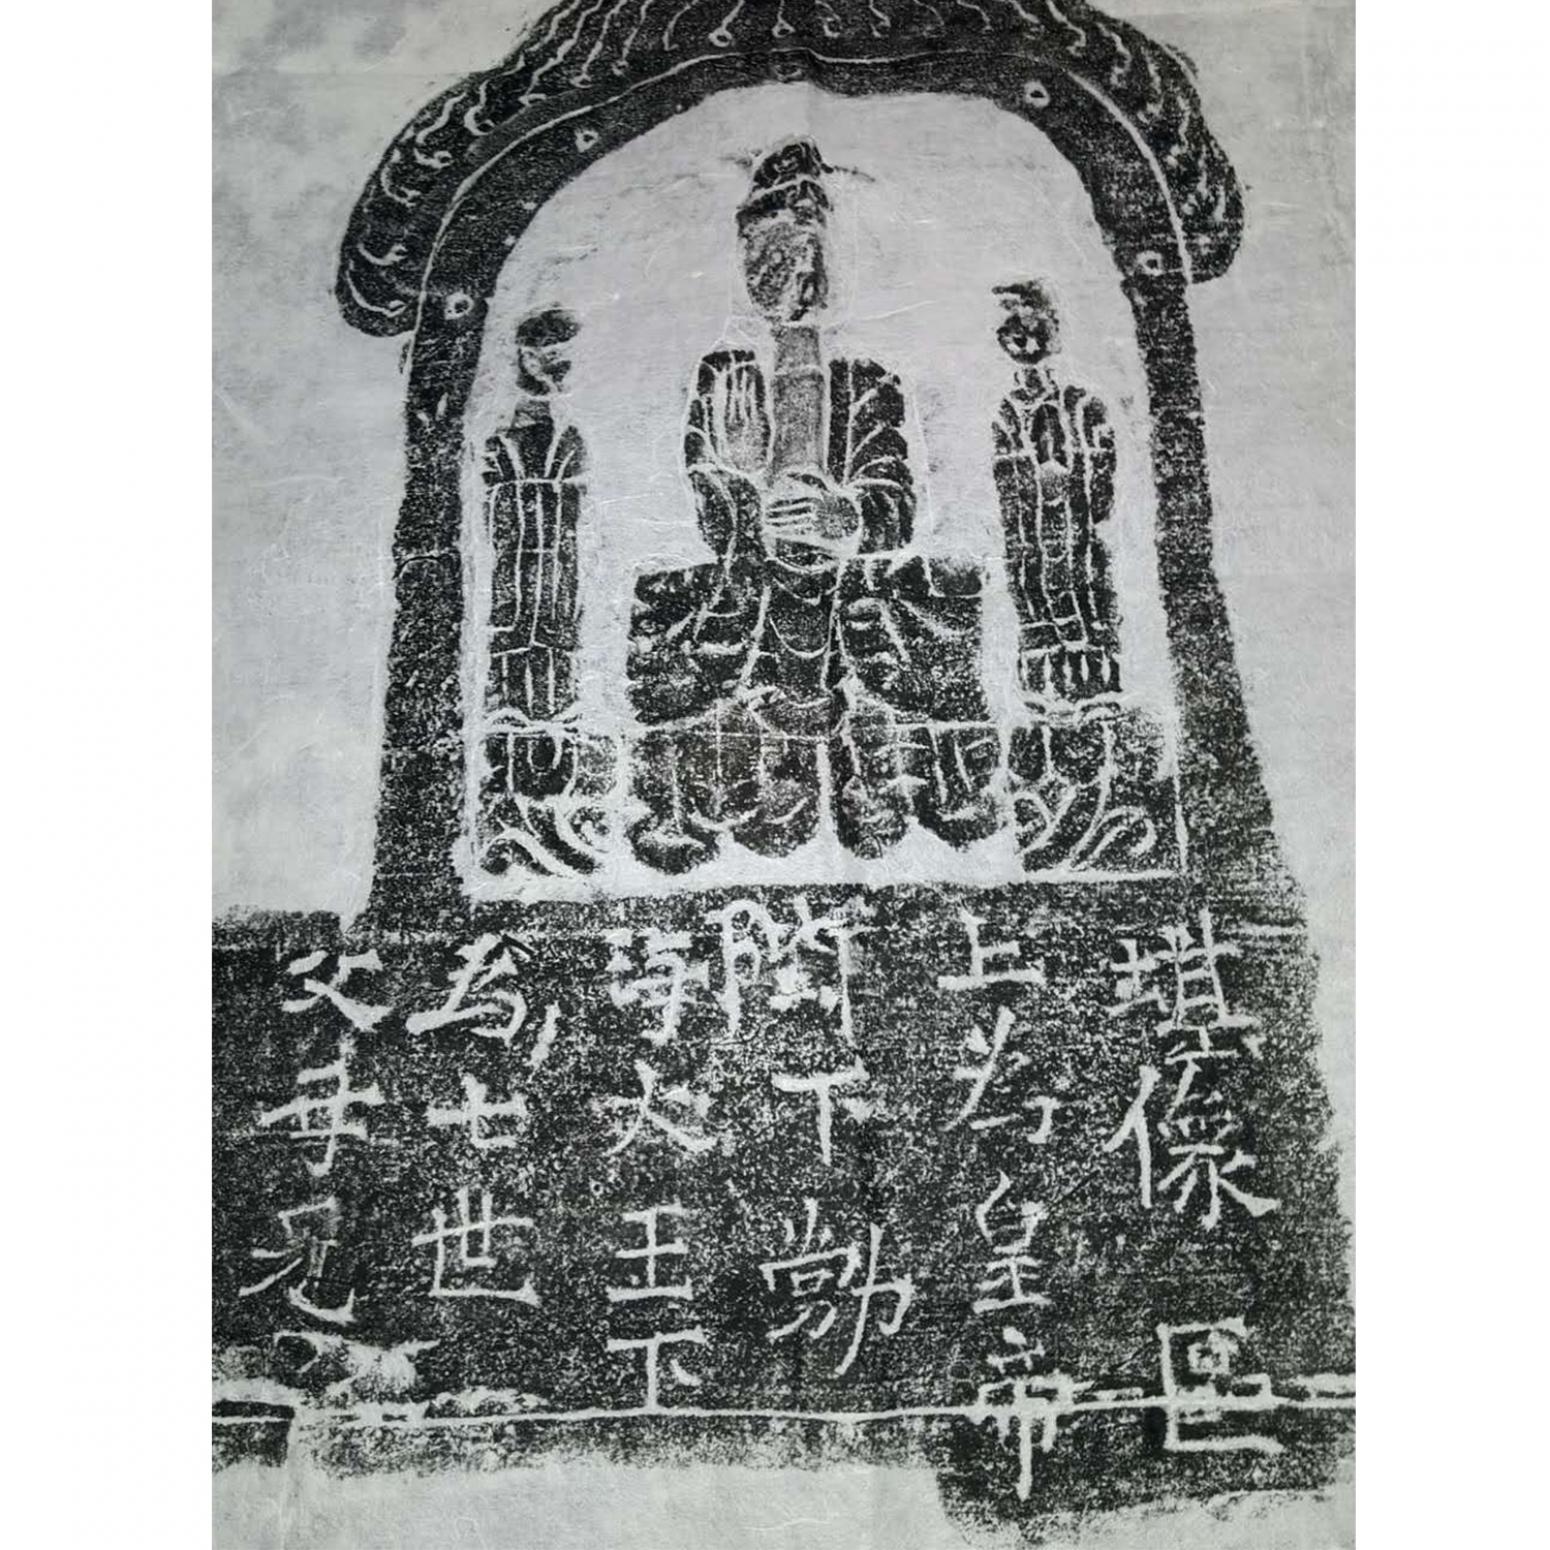 堪像區
上为皇帝
陛下勃
海大王下
為七世
父母見